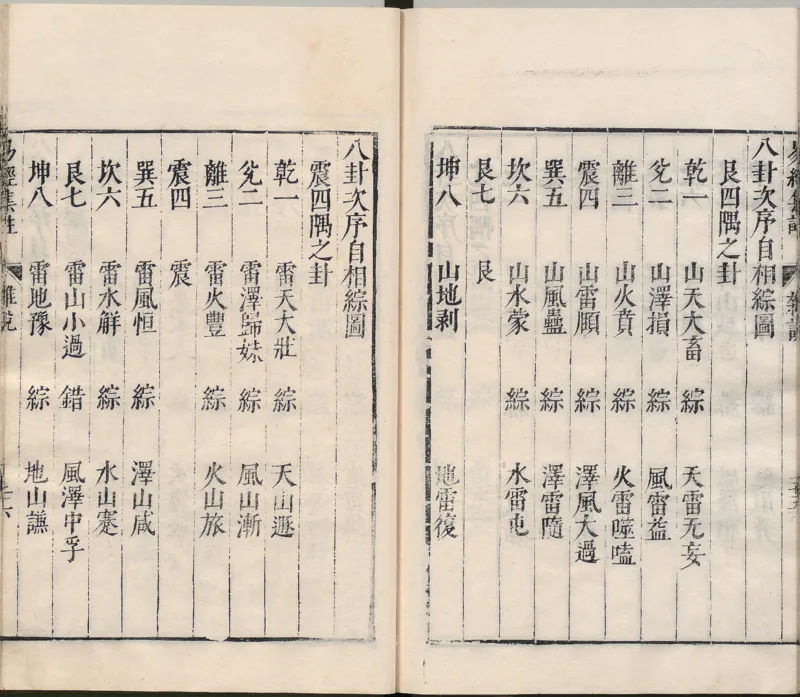 易經集註 雜說
八卦次序自相綜圖
艮四隅之卦
乾一 山天大畜 綜 天雷无妄
兊二 山澤損 綜 風雷益
離三 山火賁 綜 火雷噬嗑
震四 山雷頤 綜 澤風大過
巽五 山風蠱 綜 澤雷隨
坎六 山水蒙 綜 水雷屯
艮七 艮
坤八 山地剥 地雷復
八卦次序自相綜圖
震四隅之卦
乾一 雷天大壯 綜 天山遯
兊二 雷澤歸妹 綜 風山漸
離三 雷火豐 綜 火山旅
震四 震
巽五 雷風恒 綜 澤山咸
坎六 雷水解 綜 水山蹇
艮七 雷山小過 錯 風澤中孚
坤八 雷地豫 綜 地山謙
易經集註 雜說